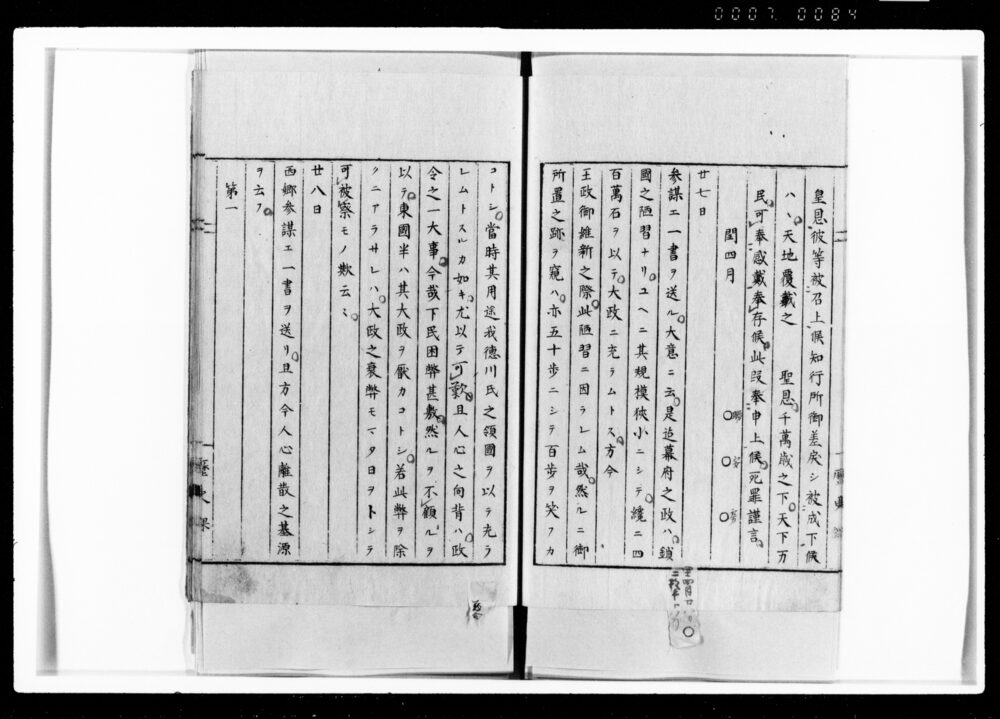 0007 0084
皇恩彼等被召上候知行所御差戻シ被成下候
ハヽ天地覆載之　聖恩千萬歳之下天下万
民可奉感戴奉存候此段奉申上候死罪謹言
閏四月　勝安房
廿七日
参謀エ一書ヲ送ル大意ニ云是迄幕府之政ハ鎖
國之陋習ナリユヘニ其規模狭小ニシテ纔ニ四
百萬石ヲ以テ大政ニ充ラムトス方今
王政御維新之際此陋習ニ因ラレム哉然ルニ御
所置之跡ヲ窺ハ亦五十歩ニシテ百歩ヲ笑フカ
コトシ當時其用途我徳川氏之領國ヲ以ラ充ラ
レムトスルカ如キ尤以テ可歎且人心之向背ハ政
令之一大事今哉下民困弊甚敷然ルヲ不顧ルヲ
以テ東國半ハ其大政ヲ厭カコトシ若此弊ヲ除
クニアラサレハ大政之衰弊モマタ日ヲトシテ
可被察モノ歟云ミ
廿八日
西郷参謀エ一書ヲ送リ且方今人心離散之基源
ヲ云フ
第一
歴史課